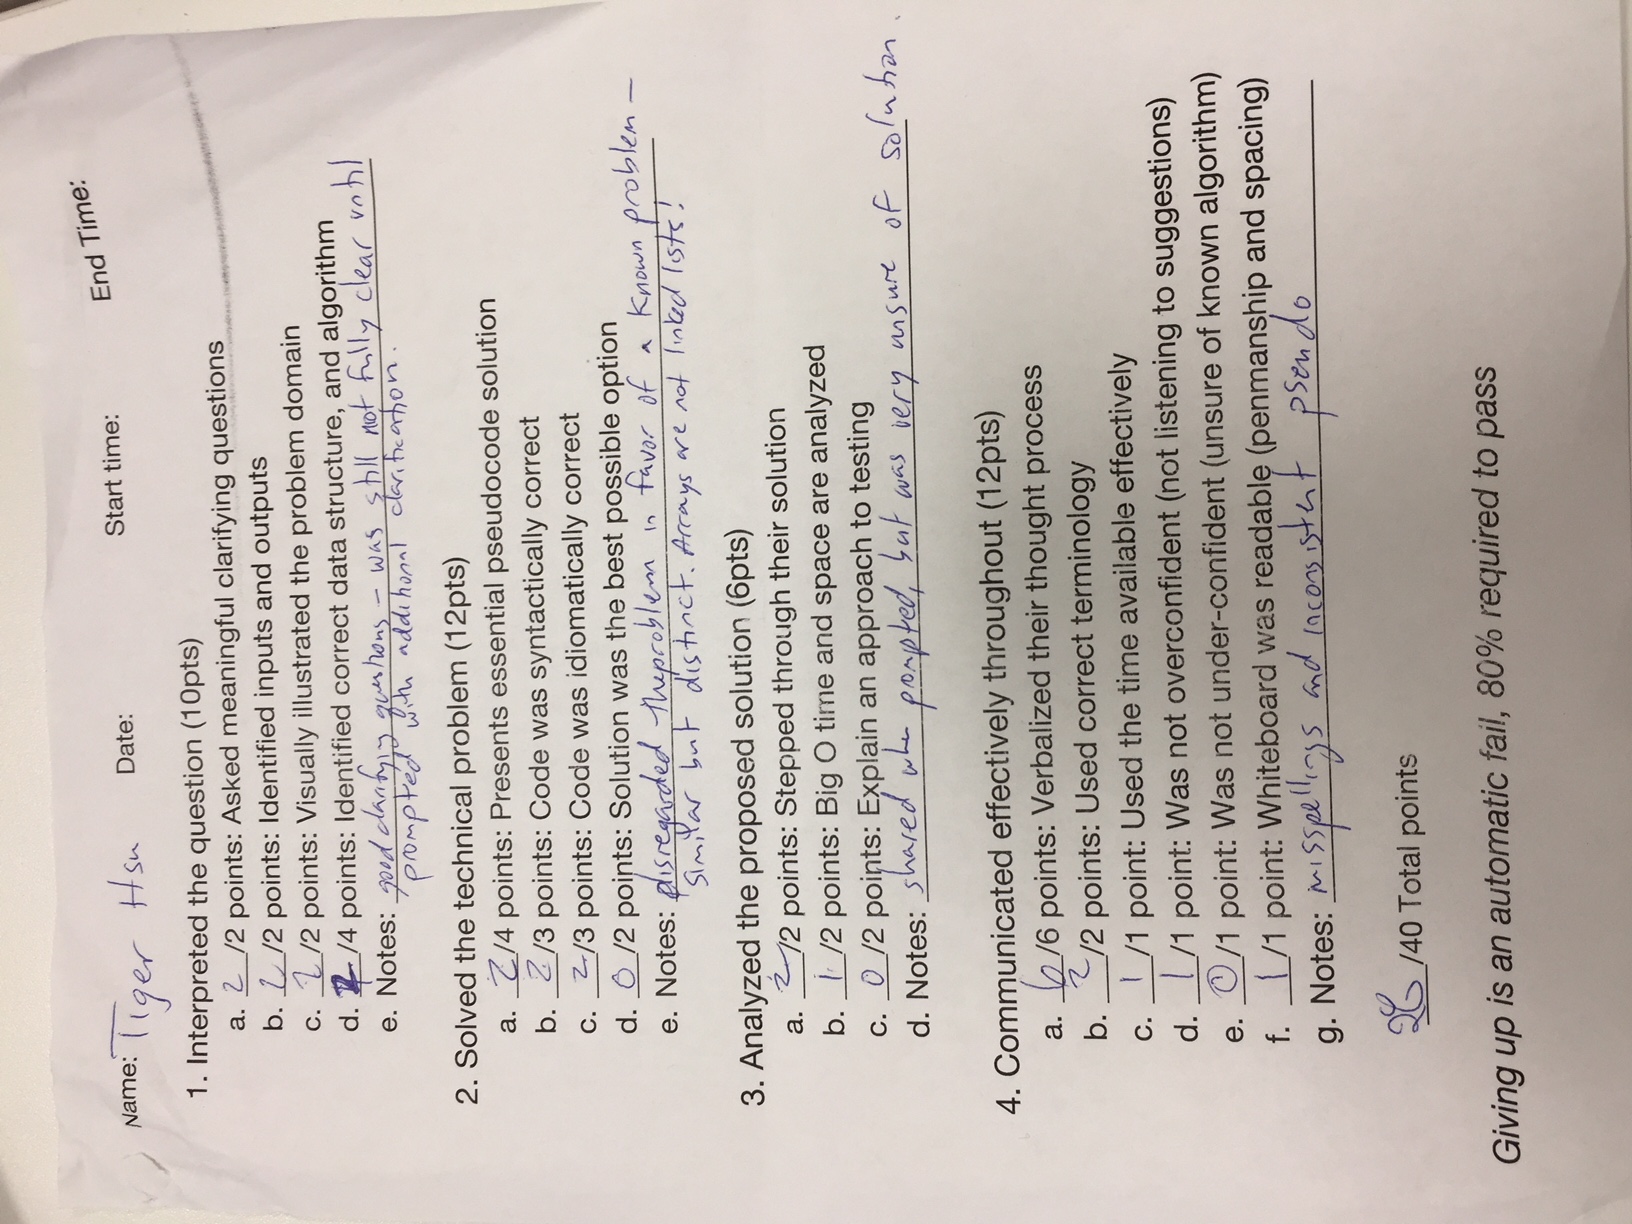 Name: Tiger Hsu Date: Start time: End Time:
1. Interpreted the question (10pts)
a. 2/2 points: Asked meaningful clarifying questions
b. 2/2 points: Identified inputs and outputs
c. 2/2 points: Visually illustrated the problem domain
d. /4 points: Identified correct data structure, and algorithm
e. Notes: good clarifying questions – was still not fully clear until
prompted with additional clarification.
2. Solved the technical problem (12pts)
a. 2/4 points: Presents essential pseudocode solution
b. 2/3 points: Code was syntactically correct
c. 2/3 points: Code was idiomatically correct
d. 0/2 points: Solution was the best possible option
e. Notes: disregarded the problem in favor of a known problem –
similar but distinct. Arrays are not linked lists!
3. Analyzed the proposed solution (6pts)
a. 2/2 points: Stepped through their solution
b. 1/2 points: Big O time and space are analyzed
c. 0/2 points: Explain an approach to testing
d. Notes: shared when prompted, but was very unsure of solution.
4. Communicated effectively throughout (12pts)
a. 6/6 points: Verbalized their thought process
b. 2/2 points: Used correct terminology
c. 1/1 point: Used the time available effectively
d. 1/1 point: Was not overconfident (not listening to suggestions)
e. 0/1 point: Was not under-confident (unsure of known algorithm)
f. 1/1 point: Whiteboard was readable (penmanship and spacing)
g. Notes: misspellings and inconsistent pseudo
/40 Total points
Giving up is an automatic fail, 80% required to pass